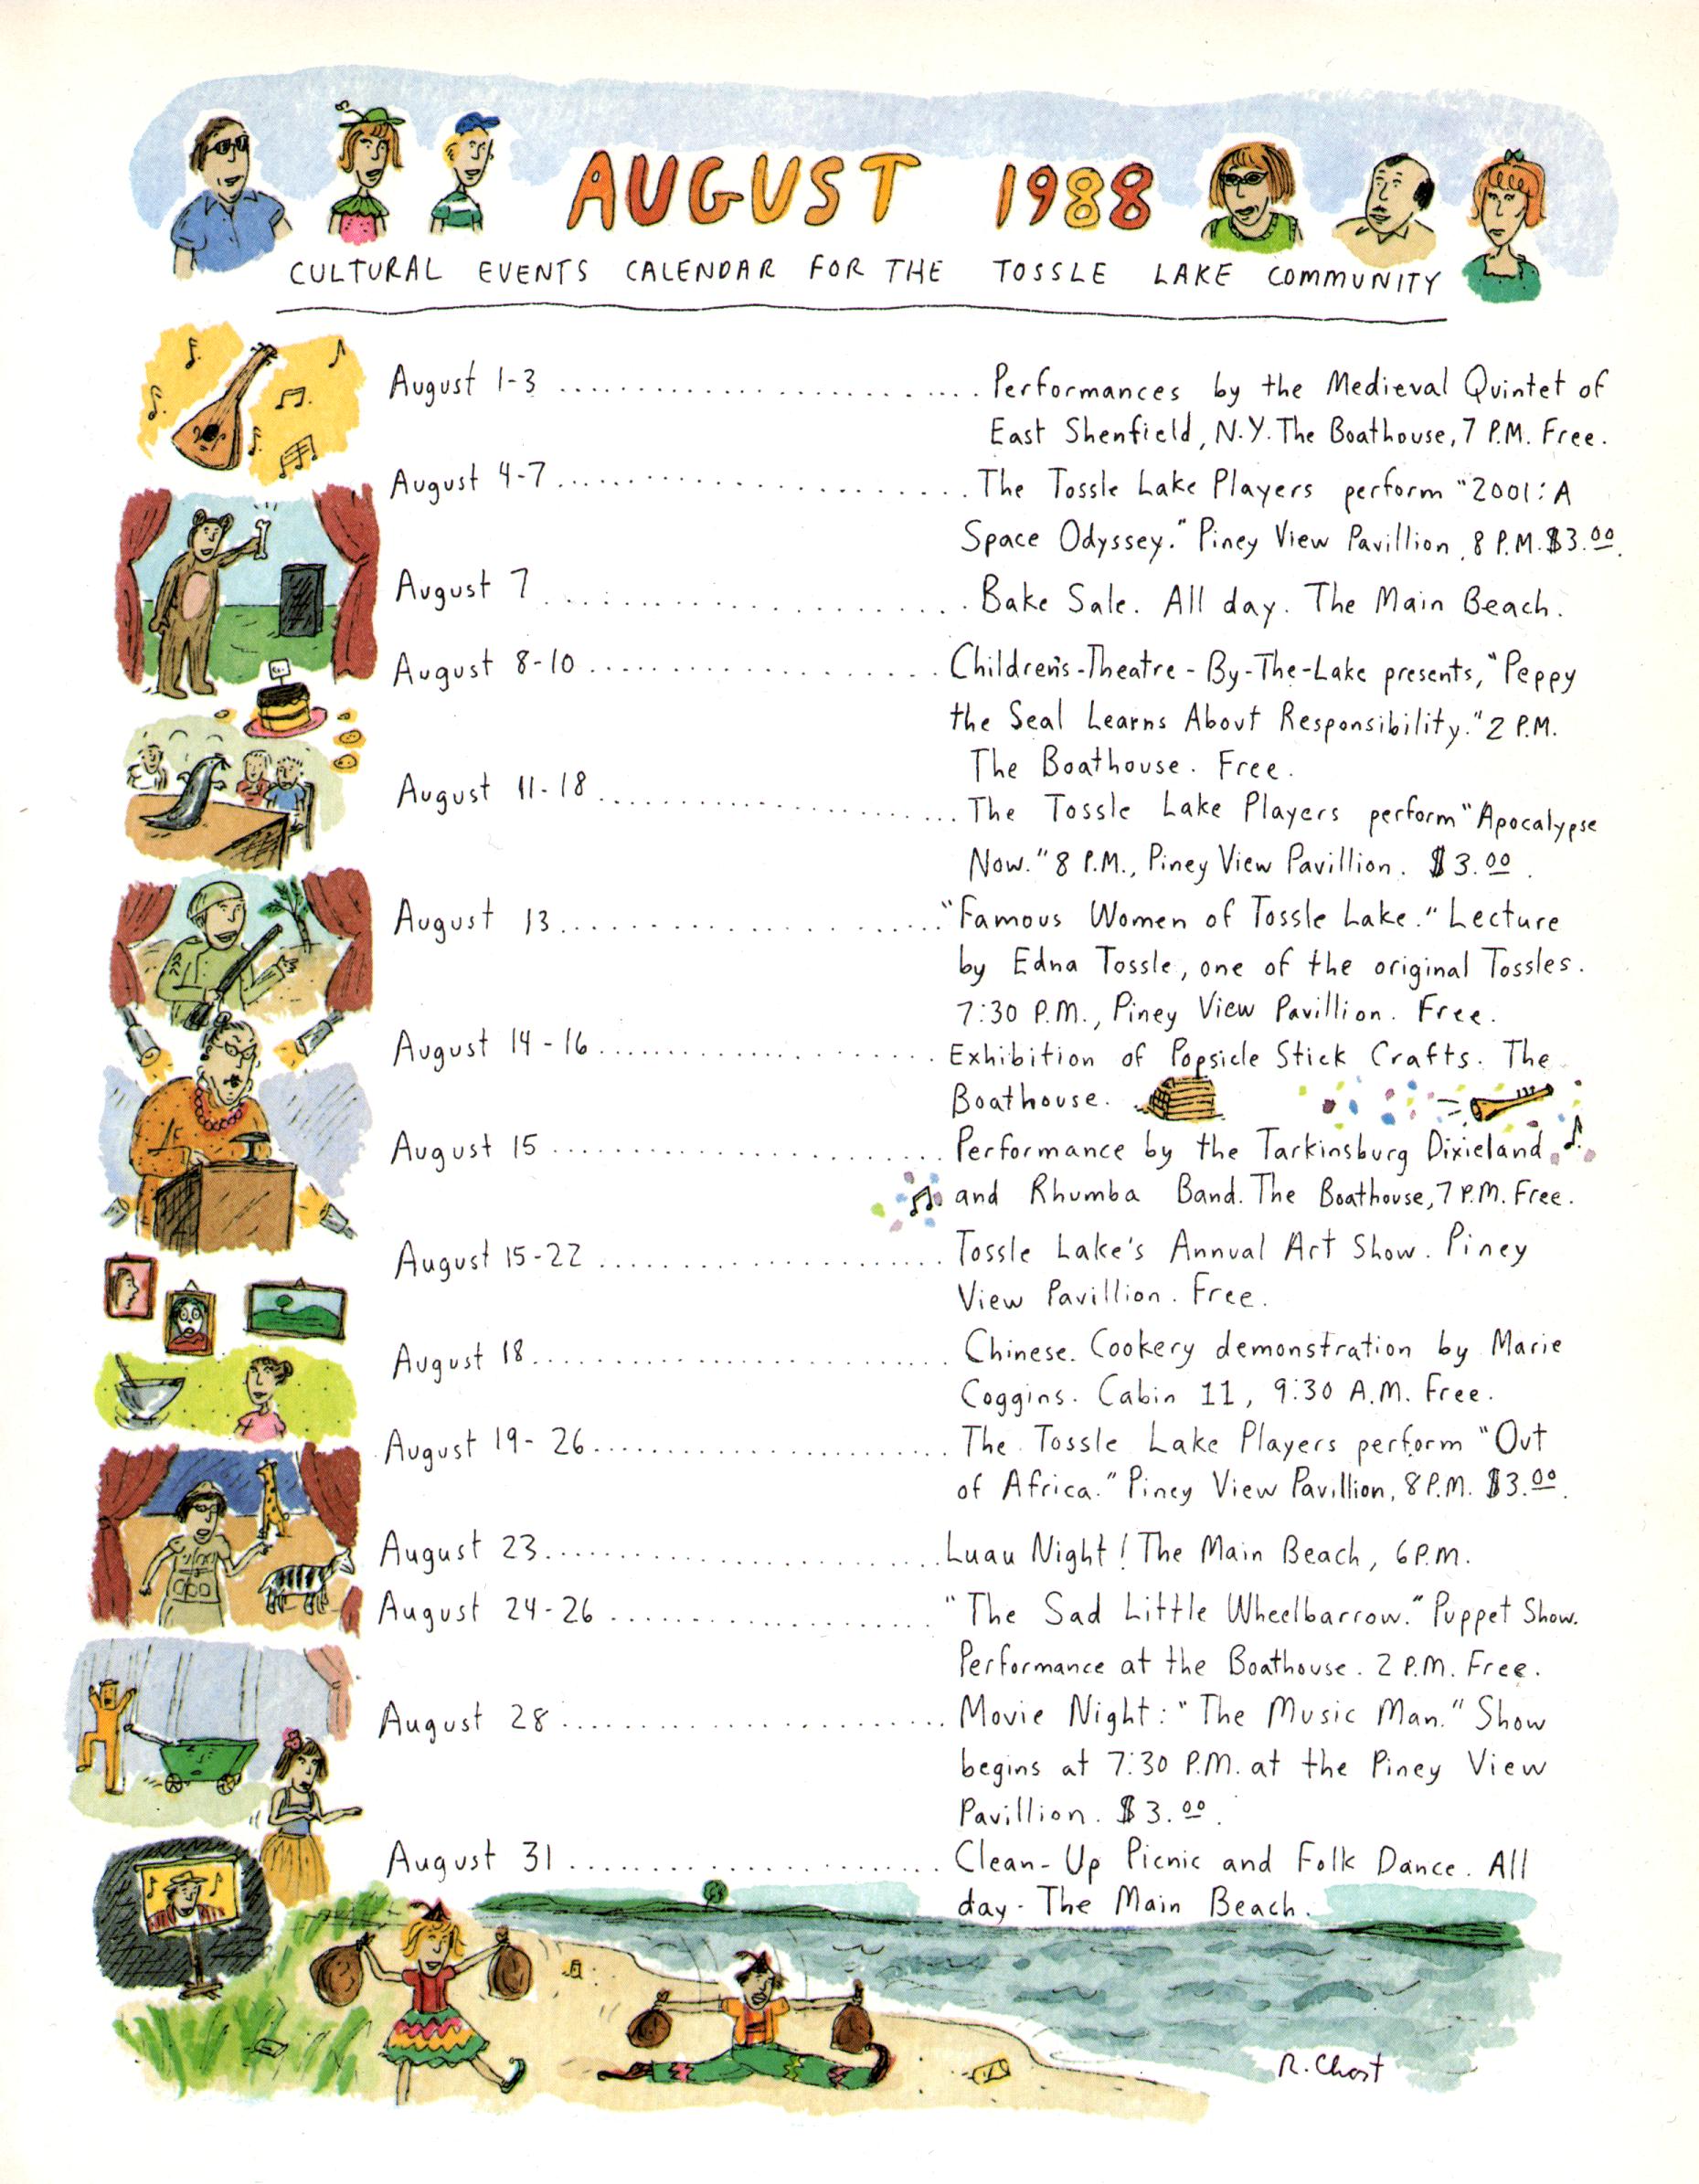 AUGUST 1988
CULTURAL EVENTS CALENDAR FOR THE TOSSLE LAKE COMMUNITY
August 1-3 .................... Performances by the Medieval Quintet of
East Shenfield, N.Y. The Boathouse, 7 P.M. Free.
August 4-7 .................... The Tossle Lake Players perform "2001: A
Space Odyssey." Piney View Pavillion, 8 P.M. $3.00.
August 7 .................... Bake Sale. All day. The Main Beach.
August 8-10 .................... Children's-Theatre-By-The-Lake presents, "Peppy
the Seal Learns About Responsibility." 2 P.M.
The Boathouse. Free.
August 11-18 .................... The Tossle Lake Players perform "Apocalypse
Now." 8 P.M., Piney View Pavillion. $3.00.
August 13 .................... "Famous Women of Tossle Lake." Lecture
by Edna Tossle, one of the original Tossles.
7:30 P.M., Piney View Pavillion. Free.
August 14-16 .................... Exhibition of Popsicle Stick Crafts. The
Boathouse.
August 15 .................... Performance by the Tarkinsburg Dixieland
and Rhumba Band. The Boathouse, 7 P.M. Free.
August 15-22 .................... Tossle Lake's Annual Art Show. Piney
View Pavillion. Free.
August 18 .................... Chinese Cookery demonstration by Marie
Coggins. Cabin 11, 9:30 A.M. Free.
August 19-26 .................... The Tossle Lake Players perform "Out
of Africa." Piney View Pavillion, 8 P.M. $3.00.
August 23 .................... Luau Night! The Main Beach, 6 P.M.
August 24-26 .................... "The Sad Little Wheelbarrow." Puppet Show.
Performance at the Boathouse. 2 P.M. Free.
August 28 .................... Movie Night: "The Music Man." Show
begins at 7:30 P.M. at the Piney View
Pavillion. $3.00.
August 31 .................... Clean-Up Picnic and Folk Dance. All
day - The Main Beach.
R. Chast